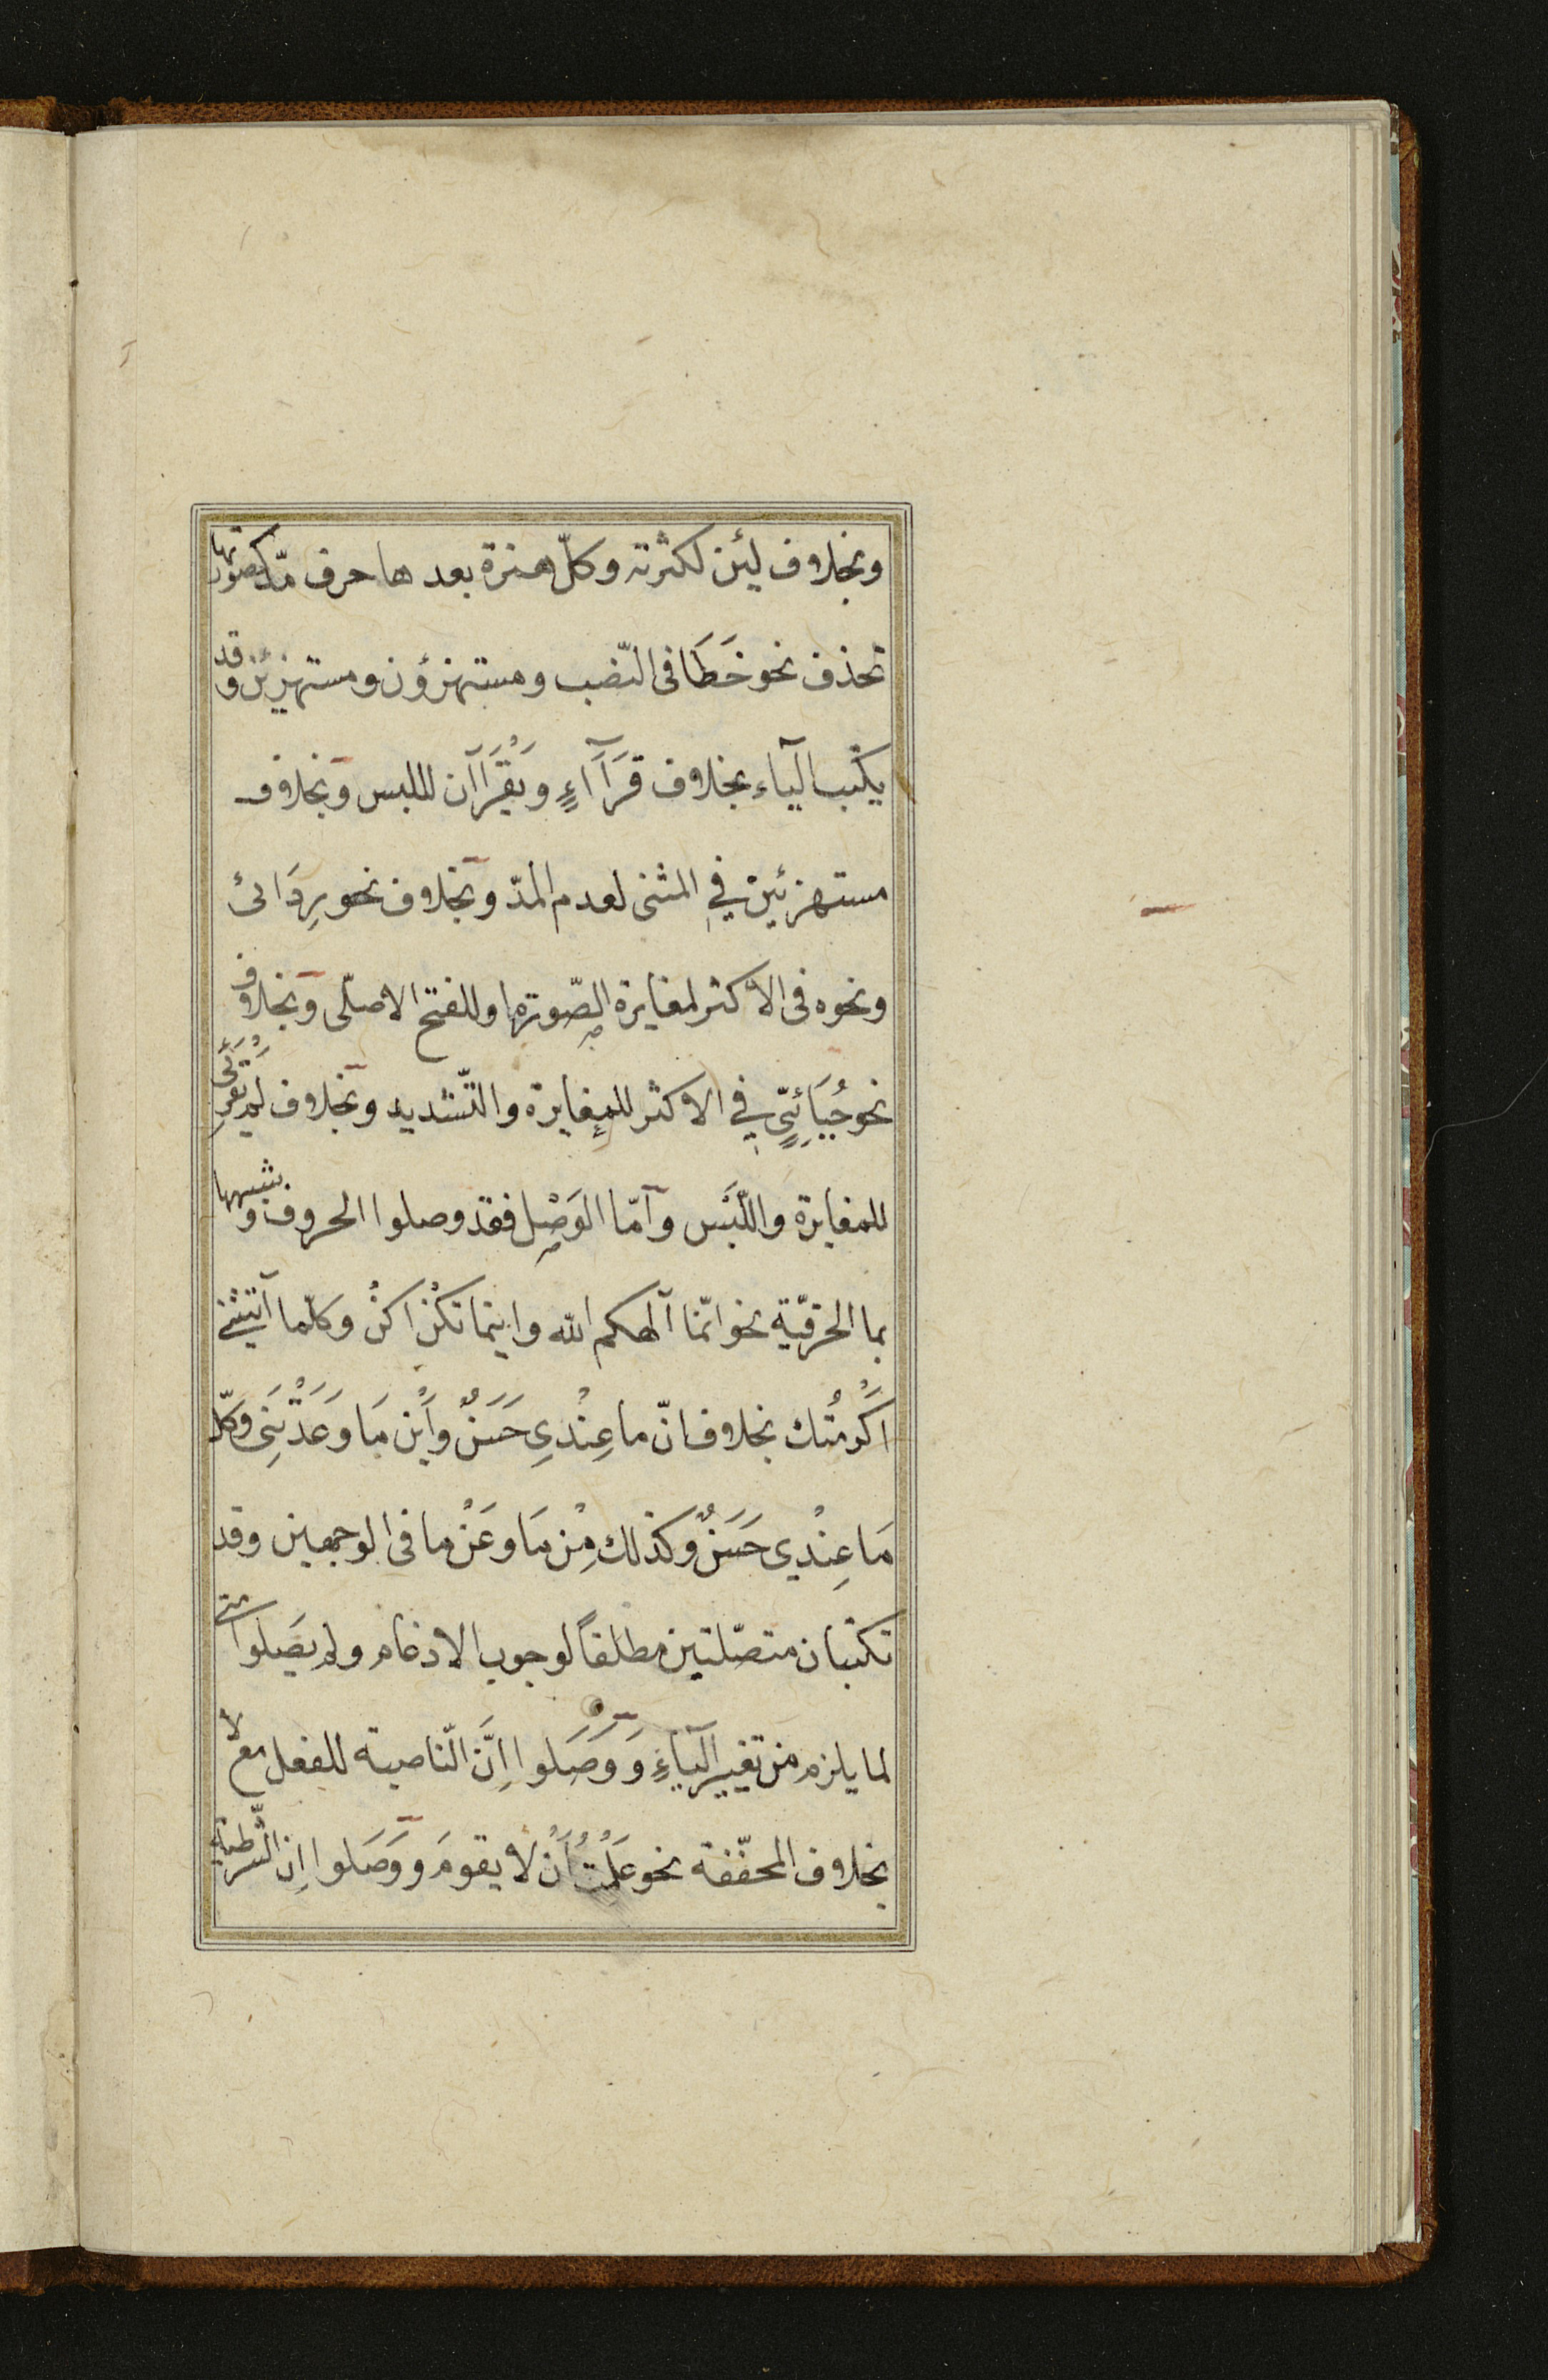 وبخلاف لئن لكثرته وكلّ همزة بعدها حرف مدّ كصورتها
تحذف نحو خَطَا فى النّصب ومستهزؤن ومستهزئن وقد
يكتب الياء بخلاف قَرَآآءٍ وَيَقْرَآآن لللبس وبخلاف
مستهزئين في المثنى لعدم المدّ وبخلاف نحو رِدَائى
ونحوه فى الاكثر لمغايرة الصّورة وللفتح الاصلّى وبخلاف
نحو حِنَّائِىٍّ في الاكثر للمغايرة والتّشديد وبخلاف لم تقرئى
للمغايرة واللَّبْس وامّا الوَصْل فقد وصلوا الحروف وشبهها
بما الحرفيّة نحو انّما آلهكم الله واينما تكنْ اكنْ وكلّما آتيتنى
اكْرَمْتُك بخلاف انّ ما عِنْدِي حَسَنٌ وأَيْن مَا وَعَدْتَنِى وكلّ
مَا عِنْدِي حَسَنٌ وكذلك مِنْ مَا وعَنْ ما فى الوجهين وقد
تكتبان متصّلتين مطلقاً لوجوب الادغام ولم يَصِلوا متى
لما يلزم من تغيير الياءِ وَوَصَلوا اِنَّ النّاصبة للفعل مع لا
بخلاف المخفّفة نحو عَلِمْتُ أَنْ لا يقومَ ووَصَلوا اِن الشّرطية